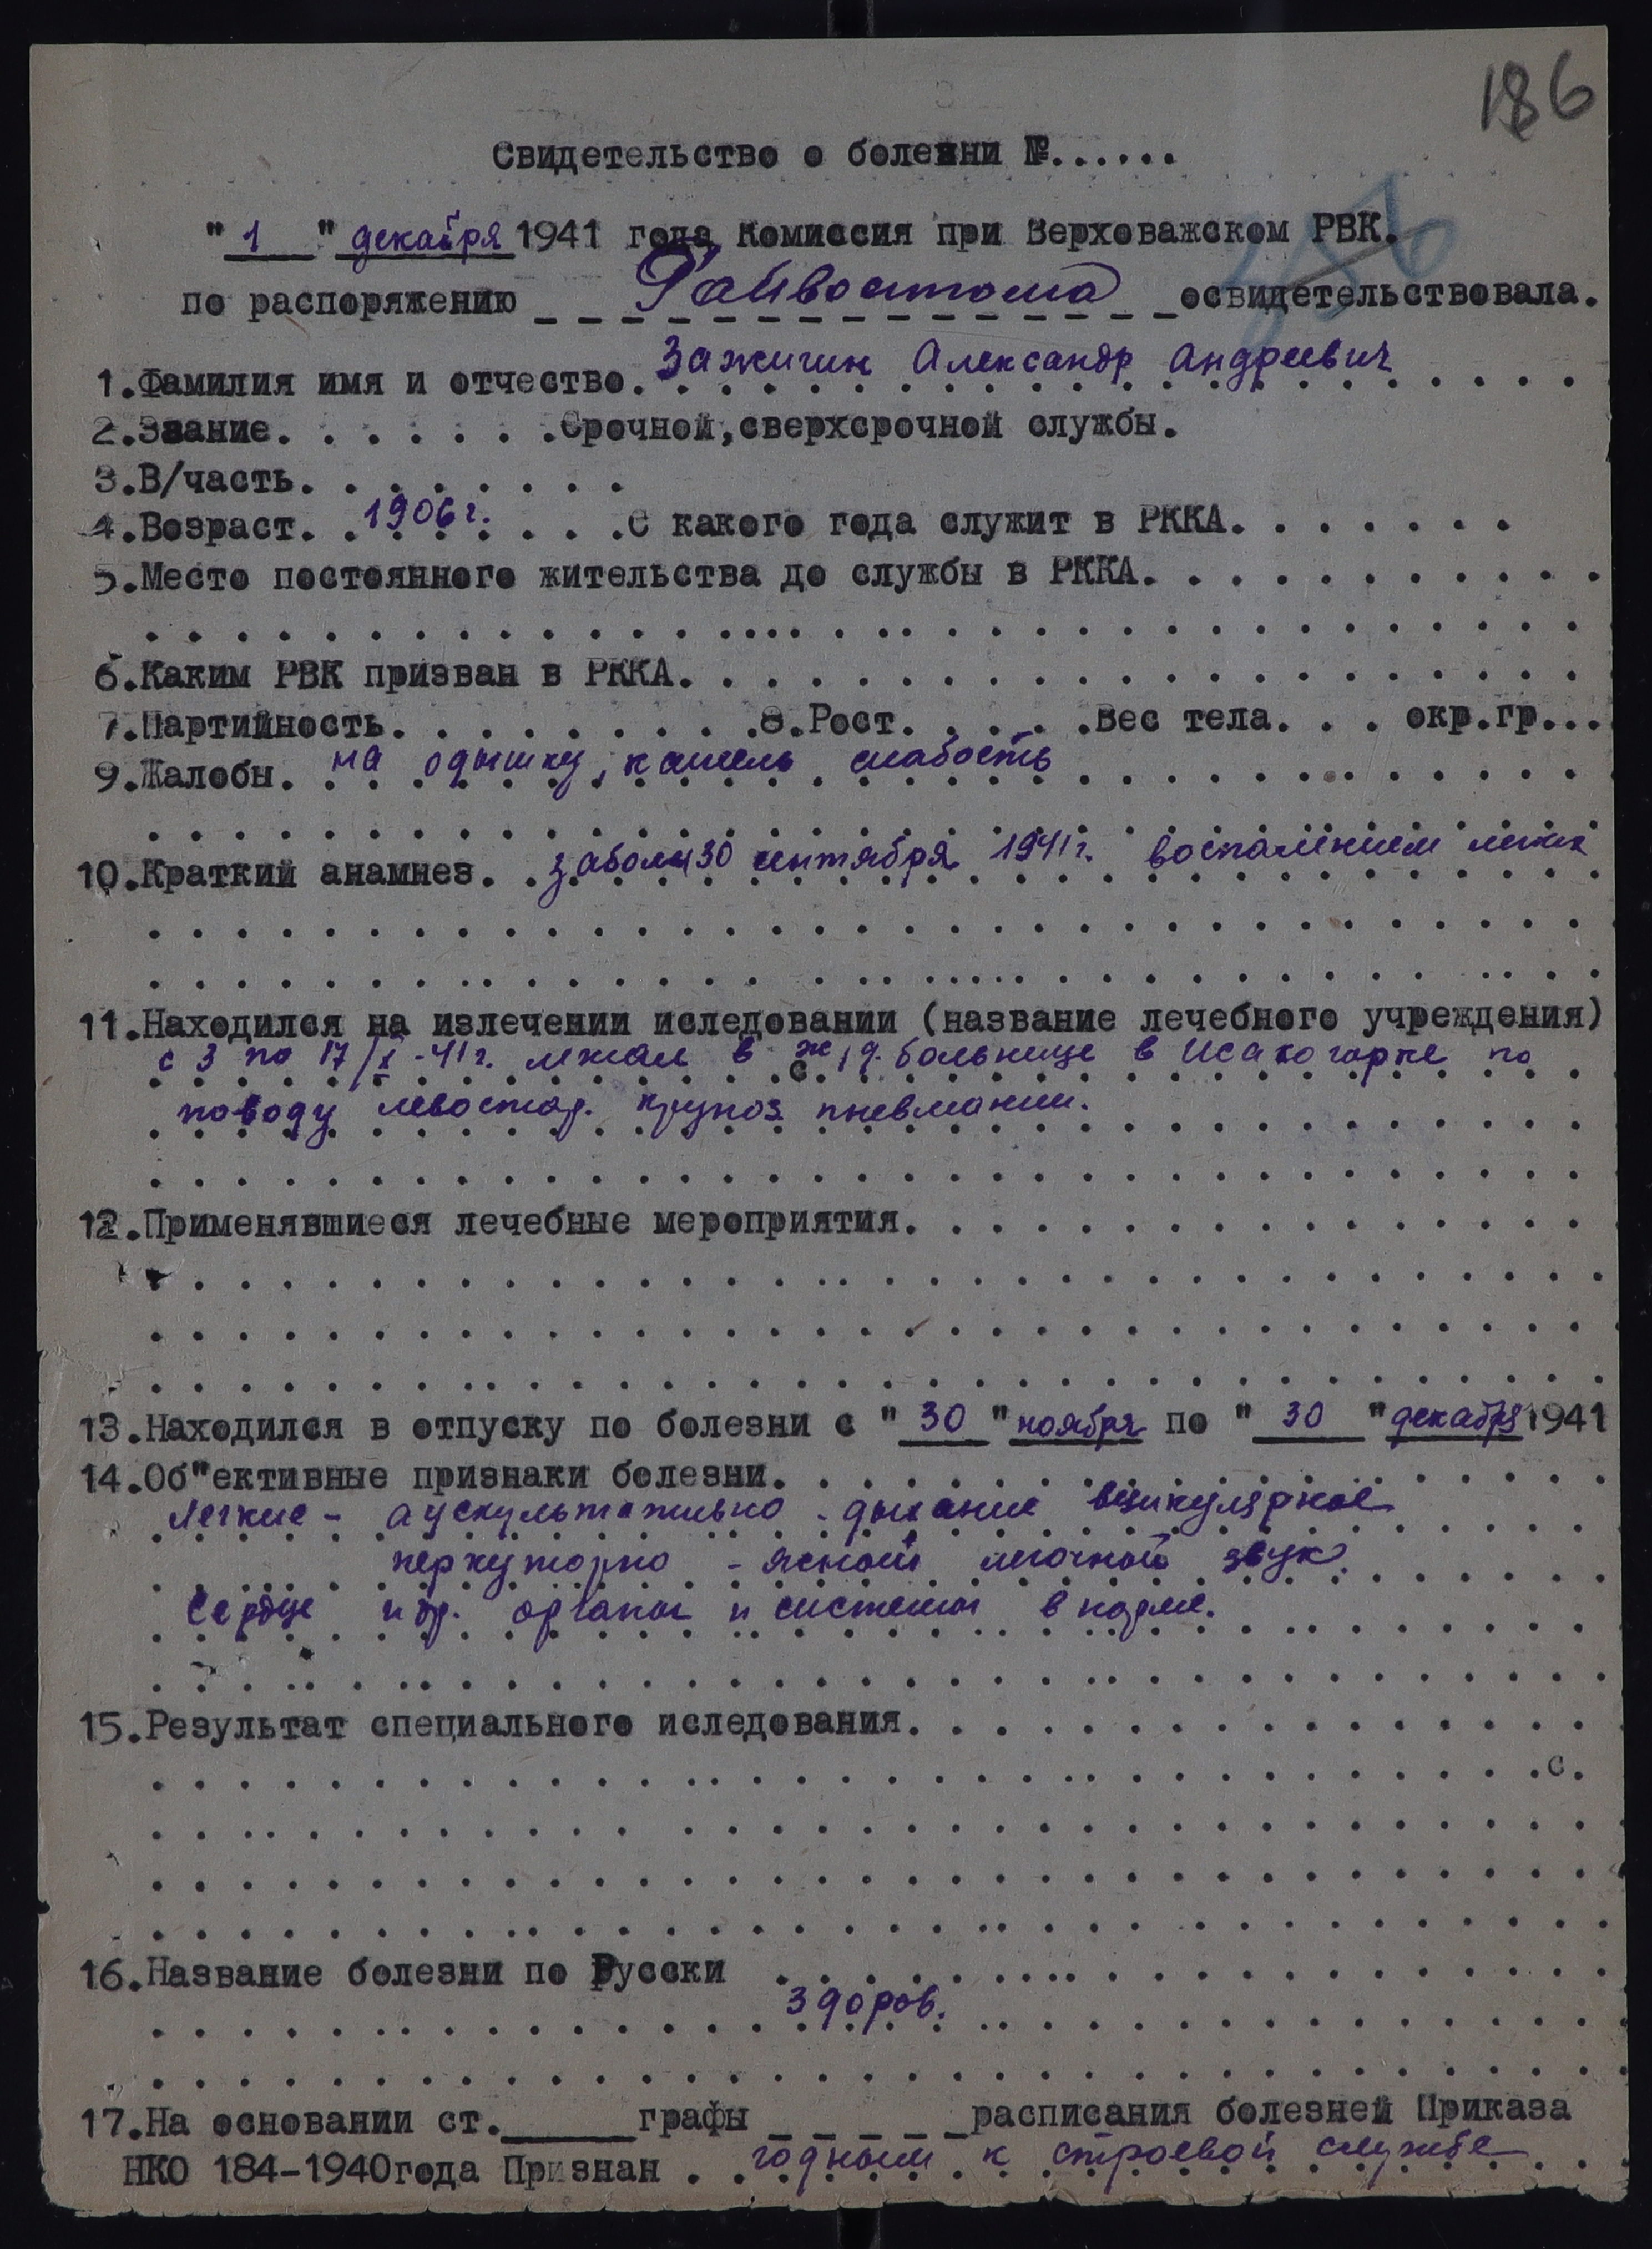 186
Свидетельство о болезни №......
"1" декабря 1941 года Комиссия при Верховажском РВК.
по распоряжению Райвоенкома освидетельствовала.
1.Фамилия имя и отчество. Зажигин Александр Андреевич
2.Звание. . . . . . .Срочной,сверхсрочной службы.
3.В/часть. . . . . . . .
4.Возраст. . 1906 г. . . .С какого года служит в РККА. . . . . . .
5.Место постоянного жительства до службы в РККА. . . . . . . . . . .
6.Каким РВК призван в РККА. . . . . . . . . . . . . . . . . . . . .
7.Партийность. . . . . . . . .8.Рост. . . . .Вес тела. . . окр.гр...
9.Жалобы. на одышку, кашель слабость
10.Краткий анамнез. . забол. 30 сентября 1941 г. воспалением легких
11.Находился на излечении иследовании (название лечебного учреждения)
с 3 по 17/X-41 г. лежал в ж.д. больнице в Исакогорке по
поводу левостор. крупоз. пневмании.
12.Применявшиеся лечебные мероприятия. . . . . . . . . . . . . . . .
13.Находился в отпуску по болезни с "30" ноября по "30" декабря 1941
14.Об"ективные признаки болезни. . . . . . . . . . . . . . . . . . .
Легкие - аускультативно - дыхание везикулярное
перкуторно - ясный легочной звук.
Сердце и др. органы и системы в норме.
15.Результат специального иследования. . . . . . . . . . . . . . . .
с.
16.Название болезни по Русски . . . . . . . . . . . . . . . . . . .
Здоров.
17.На основании ст.______графы _ _ _ _ _расписания болезней Приказа
НКО 184-1940года Признан . . годным к строевой службе